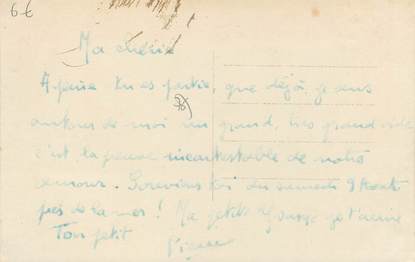 6€
Ma chérie
A peine tu es partie, que déjà, je sens
autour de moi un grand, très grand vide
c'est la preuve incontestable de notre
amour. Souviens toi du samedi 9 Août
près de la mer ! Ma petite je t'aime
Ton petit Pierre